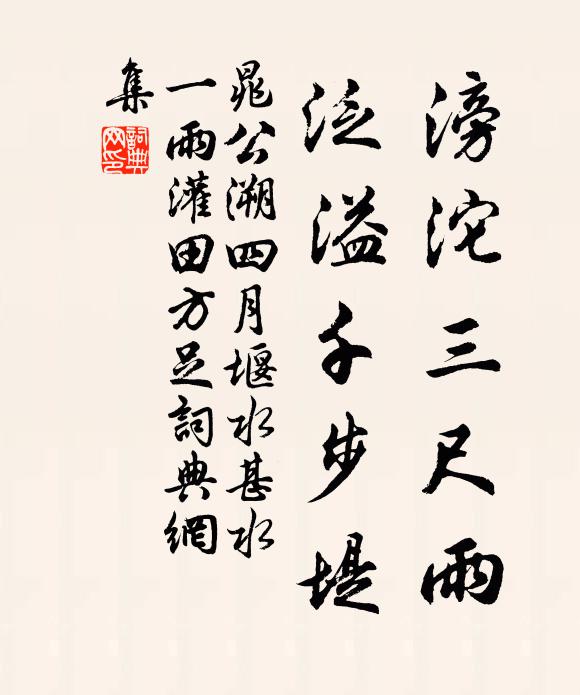 滂沱三尺雨
泛溢千步堤
晁公溯四月堰水甚水
一雨灌田方足詞典網
集
詞典網印